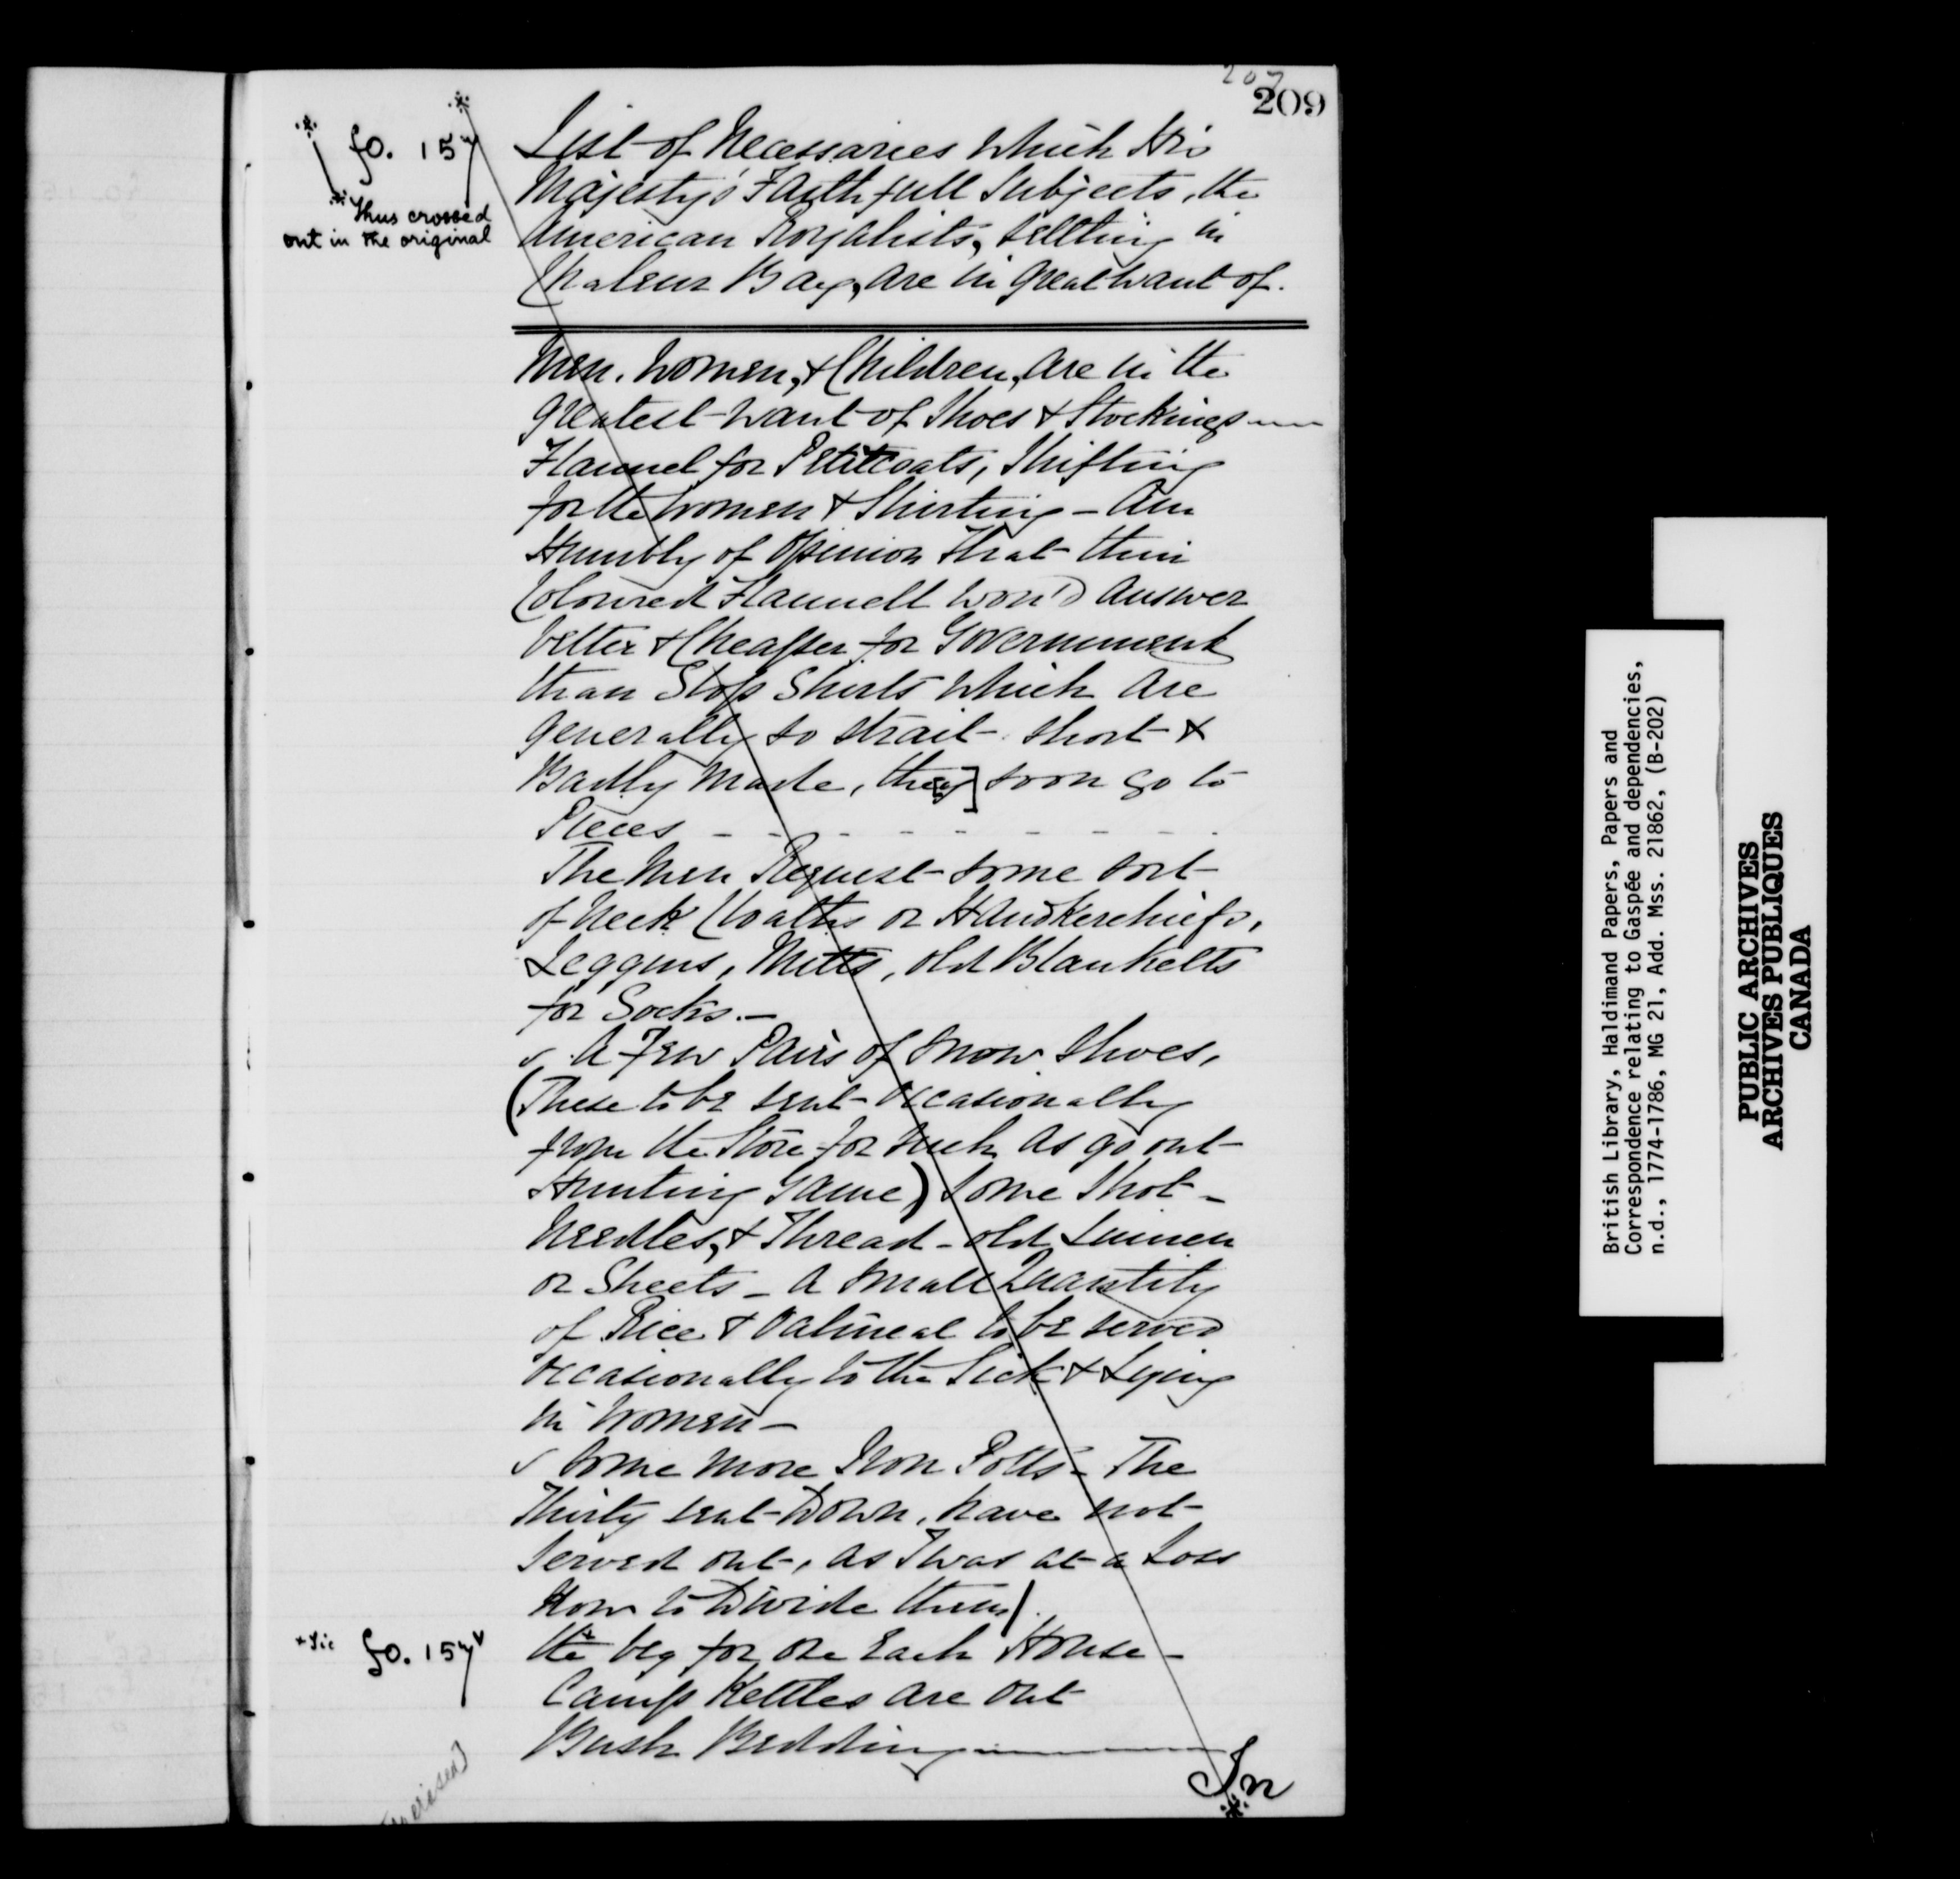 207
209
fo. 157
Thus crossed
out in the original
List of Necessaries which His
Majesty's Faithfull Subjects, the
American Royalists, Settling in
Chaleur Bay, are in great want of.
Men, Women, & Children, are in the
greatest want of Shoes & Stockings
Flannel for Petitcoats, Shifting
for the Women & Shirting - Am
Humbly of Opinion that thin
Coloured Flannell wou'd answer
better & Cheaper for Government
than Slop Shirts which are
generally so strait short &
Badly made, they] soon go to
Pieces - - - - - - - -
The Men Request some sort
of Neck Cloaths or Handkerchiefs,
Leggins, Mitts, old Blanketts
for Socks. -
A Few Pairs of Snow Shoes,
(These to be sent occasionally
from the Store for such as go out
Hunting Game) Some Shot -
Needles, & Thread - old Linnen
or Sheets - A Small Quantity
of Rice & Oatmeal to be served
occasionally to the Sick & Lying
in Women -
Some more Iron Potts - The
Thirty sent Down, have not
served out, as I was at a Loss
How to Divide them)
+ Sic fo. 157v the+ beg for one Each House -
Camp Kettles are out
Bush Bedding
In
British Library, Haldimand Papers, Papers and
Correspondence relating to Gaspée and dependencies,
n.d., 1774-1786, MG 21, Add. Mss. 21862, (B-202)
PUBLIC ARCHIVES
ARCHIVES PUBLIQUES
CANADA